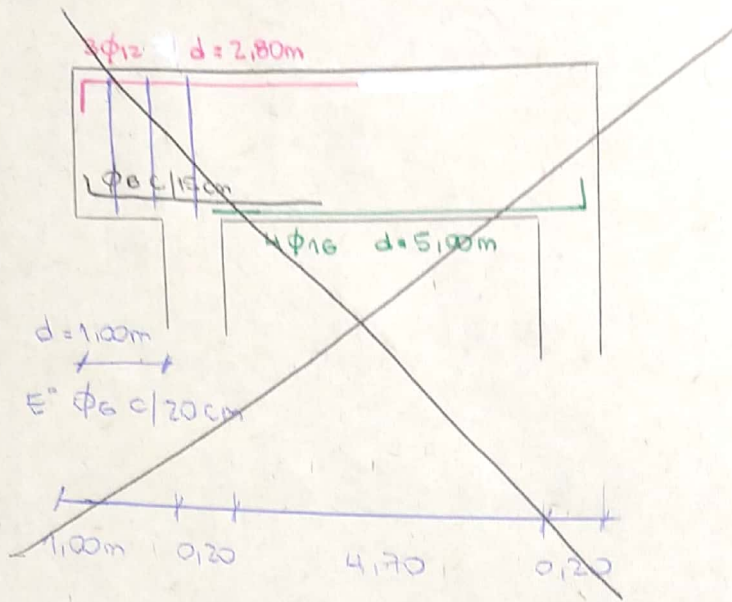 3ϕ12 d=2,80m
ϕ8 c/15cm
4ϕ16 d=5,00m
d=1,00m
Eº ϕ6 c/20cm
1,00m 0,20 4,70 0,20